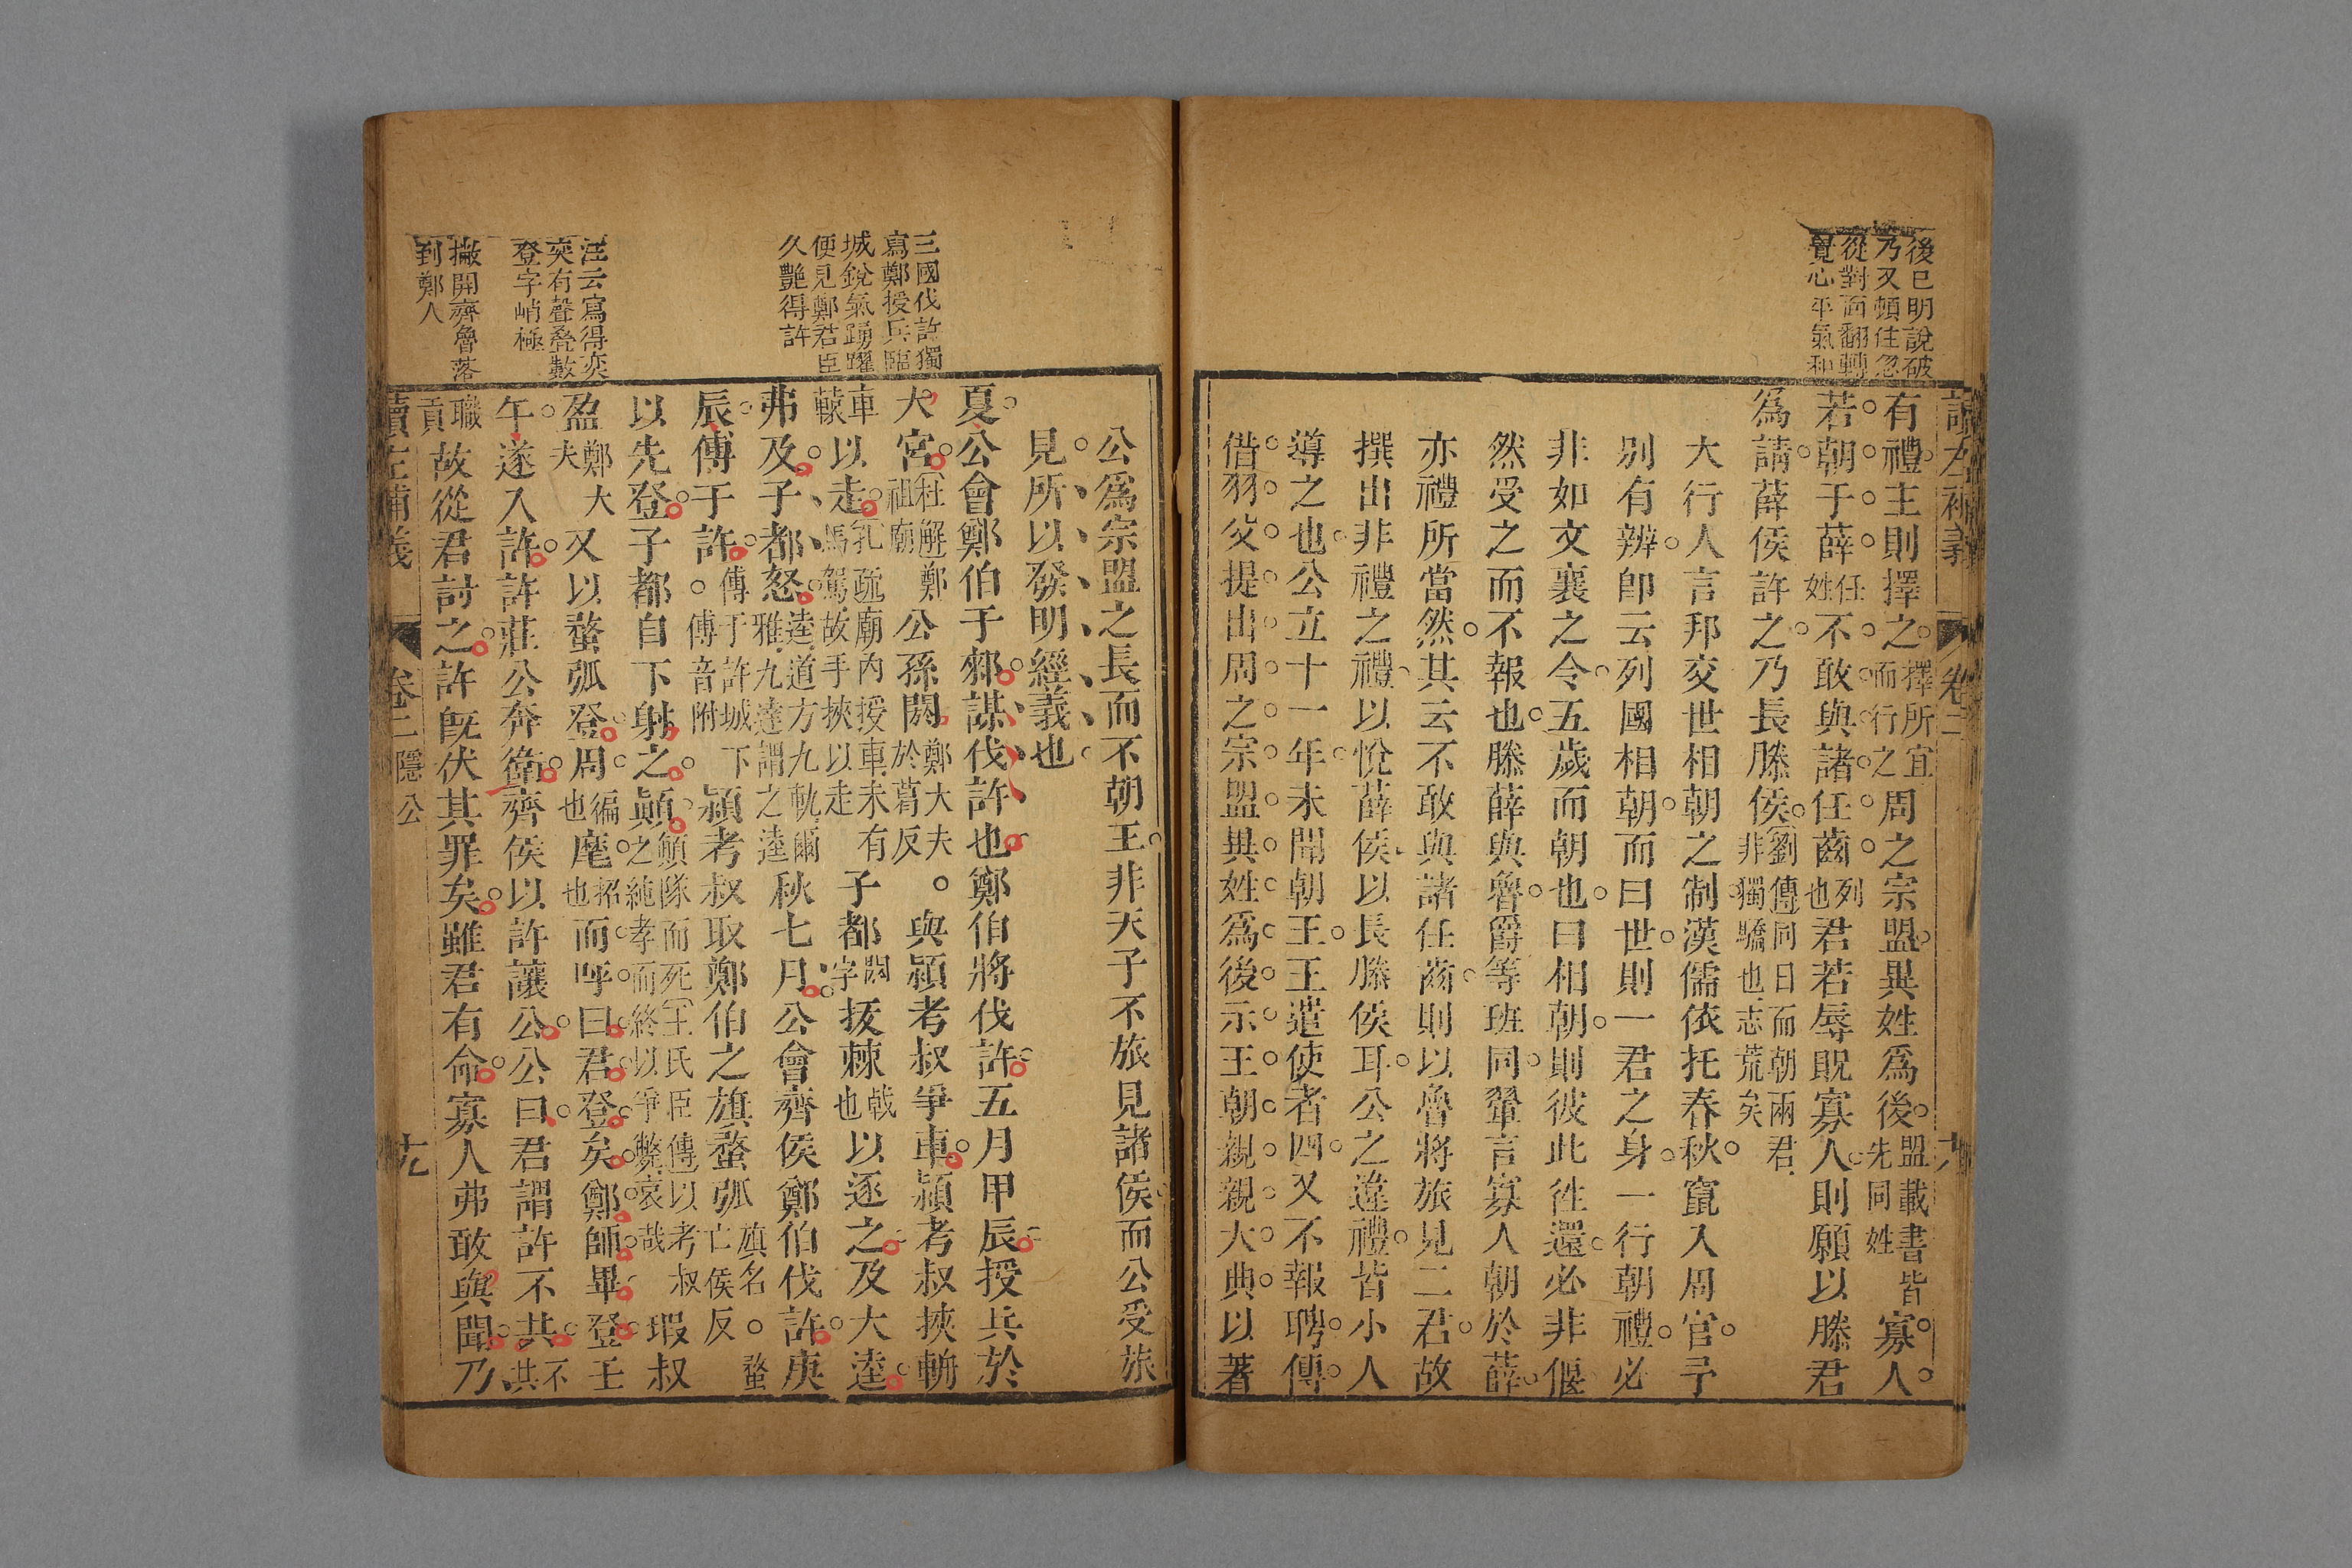 後已明說破
乃又頓住忽
從對面翻轉
覺心平氣和
讀左補義
卷二
有禮主則擇之擇所宜而行之周之宗盟異姓爲後盟載書皆先同姓寡人
若朝于薛任姓不敢與諸任齒列也君若辱貺寡人則願以滕君
爲請薛侯許之乃長滕侯劉傳同日而朝兩君非獨驕也志荒矣
大行人言邦交世相朝之制漢儒依托春秋竄入周官予
別有辨卽云列國相朝而曰世則一君之身一行朝禮必
非如文襄之令五歲而朝也曰相朝則彼此徃還必非偃
然受之而不報也滕薛與魯爵等班同翬言寡人朝於薛
亦禮所當然其云不敢與諸任齒則以魯將旅見二君故
撰出非禮之禮以悅薛侯以長滕侯耳公之違禮皆小人
導之也公立十一年未聞朝王王遣使者四又不報聘傳
借羽父提出周之宗盟異姓爲後示王朝親親大典以著
公爲宗盟之長而不朝王非天子不旅見諸侯而公受旅
見所以發明經義也
三國伐許獨
寫鄭授兵臨
城銳氣踴躍
便見鄭君臣
久艷得許
夏公會鄭伯于郲謀伐許也鄭伯將伐許五月甲辰授兵於
大宮杜解鄭祖廟公孫閼鄭大夫於葛反。與潁考叔爭車潁考叔挾輈
車轅以走孔疏廟內授車未有馬駕故手挾以走子都閼字拔棘戟也以逐之及大逵
弗及子都怒逵道方九軌爾雅九達謂之逵秋七月公會齊侯鄭伯伐許庚
辰傅于許。傅于許城下傅音附潁考叔取鄭伯之旗蝥弧旗名亡侯反。蝥
以先登子都自下射之顚顛隊而死王氏臣傳以考叔之純孝而終以爭斃哀哉瑕叔
盈鄭大夫又以蝥弧登周徧也麾招也而呼曰君登矣鄭師畢登壬
午遂入許許莊公奔衛齊侯以許讓公公曰君謂許不共不共
職貢故從君討之許旣伏其罪矣雖君有命寡人弗敢與聞乃
汪云寫得奕
奕有聲叠數
登字峭極
撇開齊魯落
到鄭人
讀左補義
卷二
隱公
十九